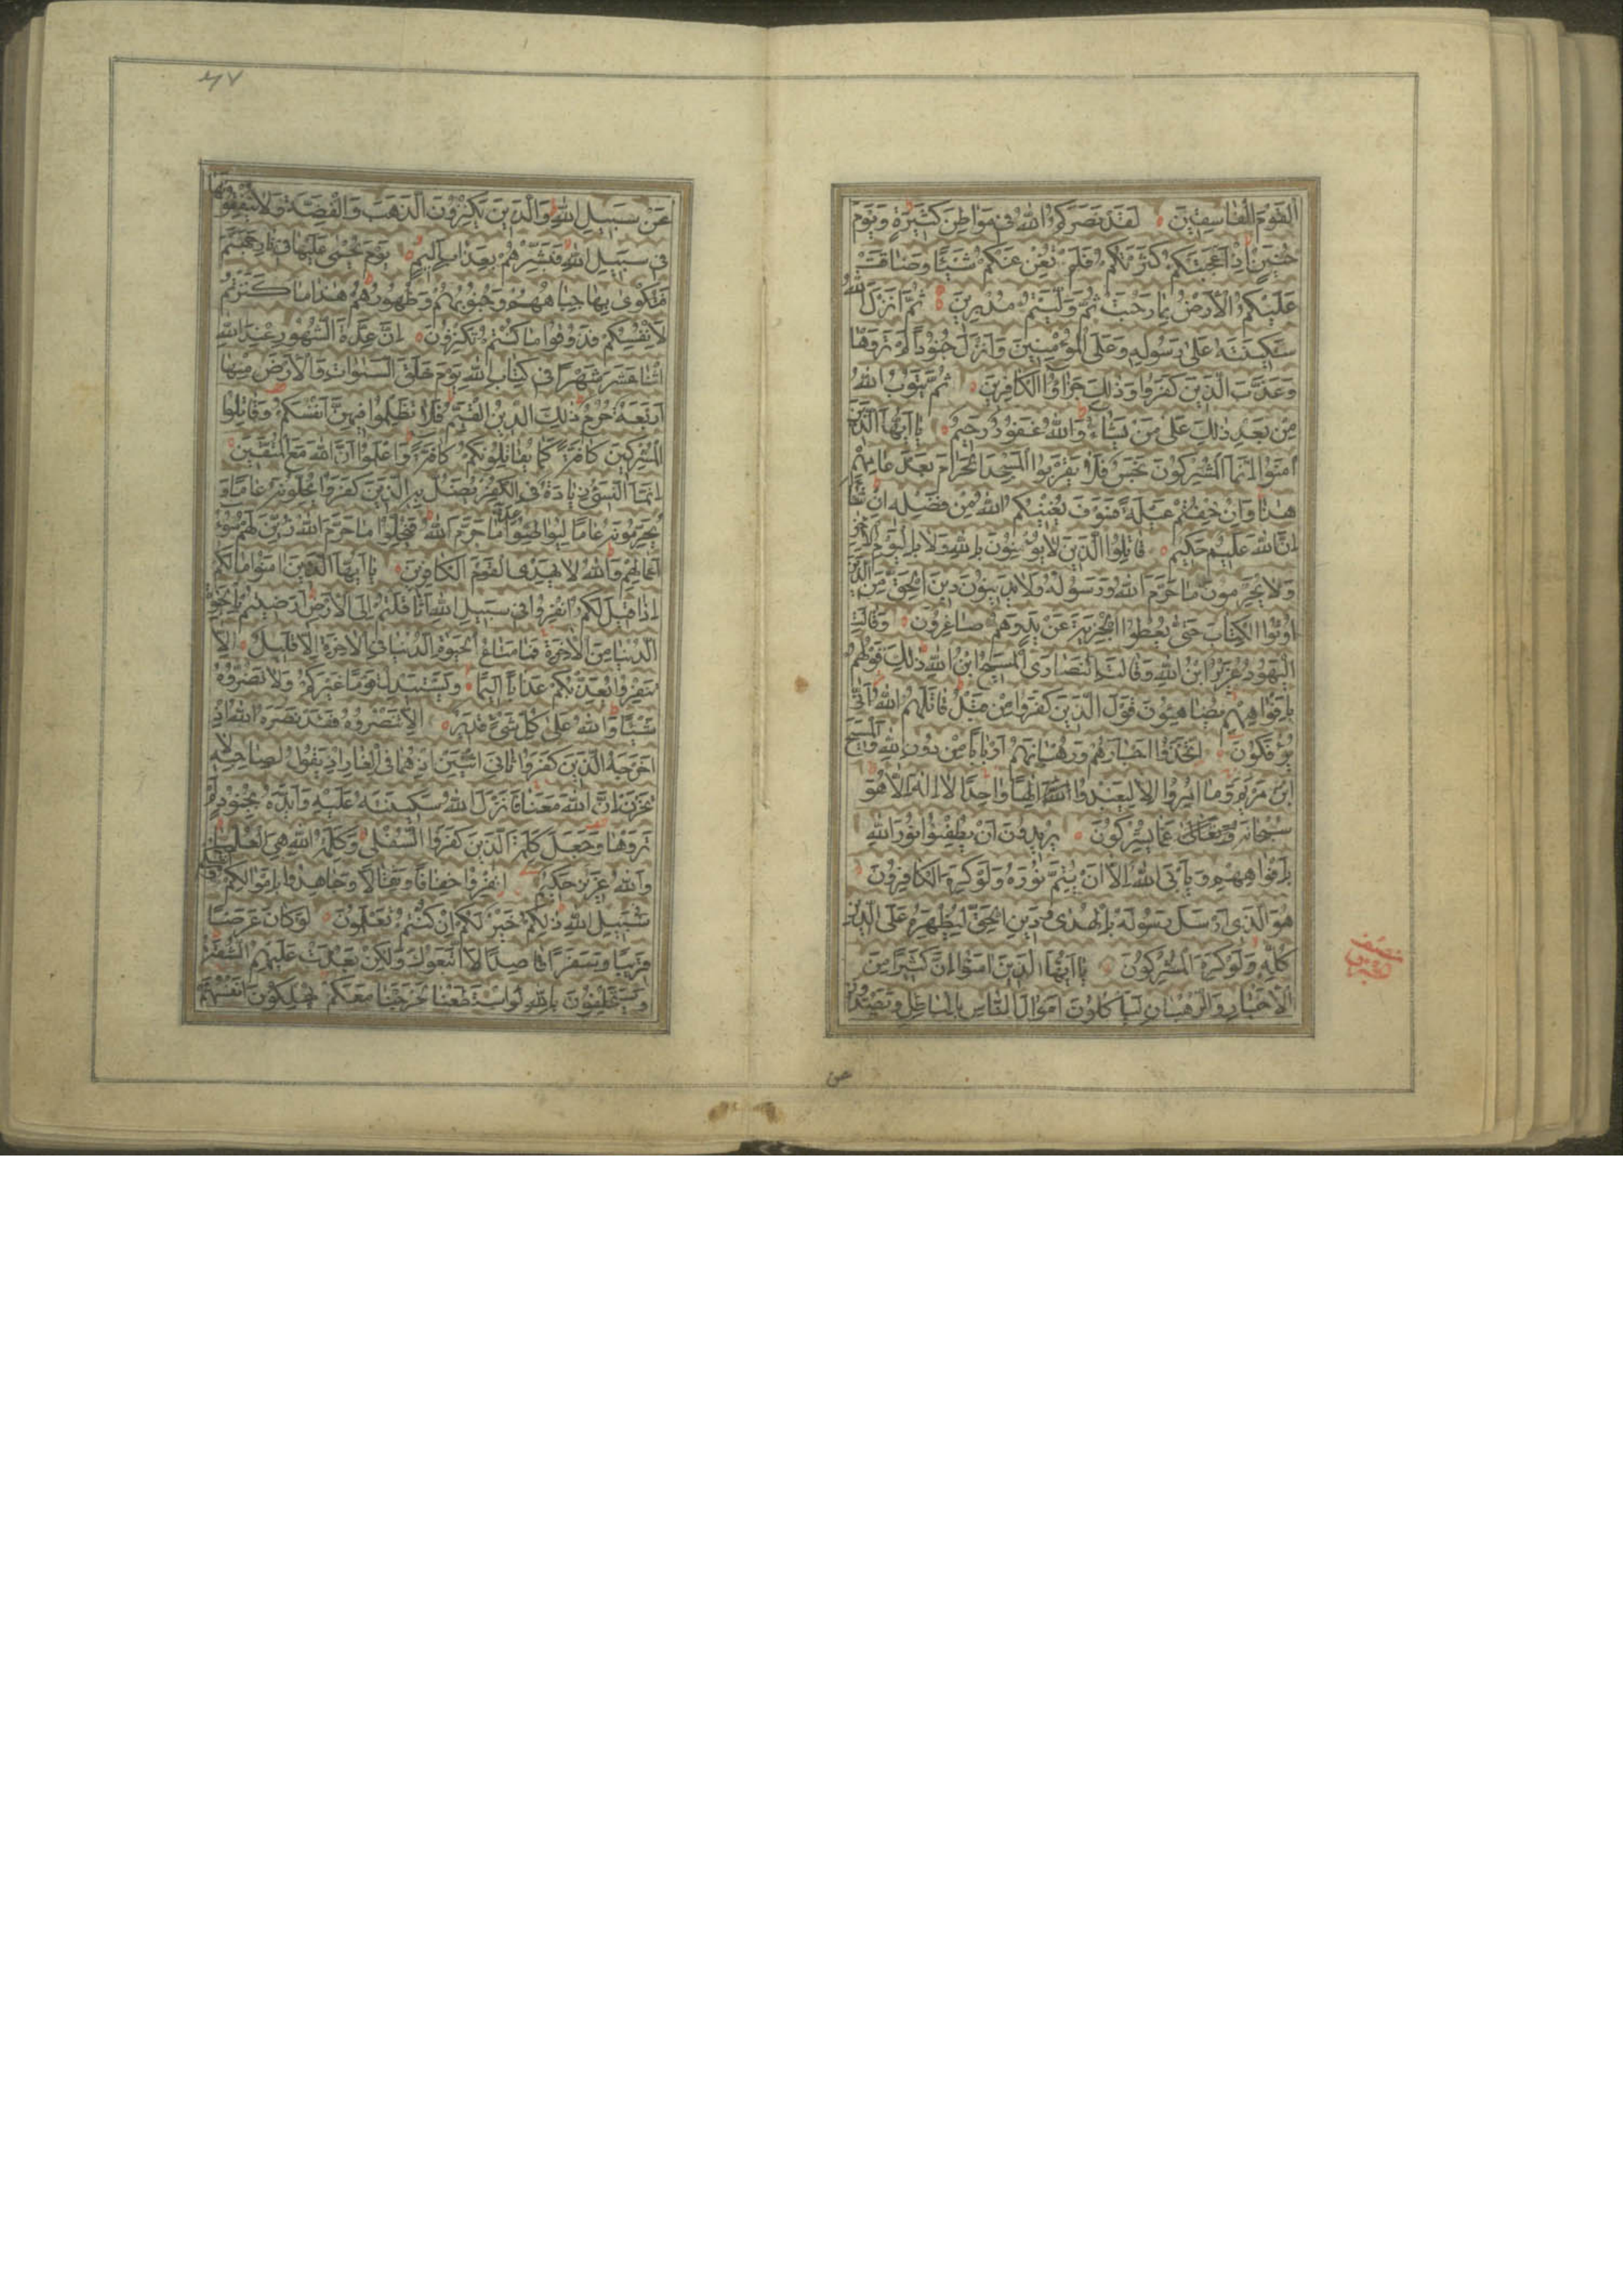 الْقَوْمَ الْفَاسِقِينَ لَقَدْ نَصَرَكُمُ اللهُ فِي مَوَاطِنَ كَثِيرَةٍ وَيَوْمَ
حُنَيْنٍ إِذْ أَعْجَبَتْكُمْ كَثْرَتُكُمْ فَلَمْ تُغْنِ عَنْكُمْ شَيْئًا وَضَاقَتْ
عَلَيْكُمُ الْأَرْضُ بِمَا رَحُبَتْ ثُمَّ وَلَّيْتُمْ مُدْبِرِينَ ثُمَّ أَنْزَلَ اللهُ
سَكِينَتَهُ عَلَى رَسُولِهِ وَعَلَى الْمُؤْمِنِينَ وَأَنْزَلَ جُنُودًا لَمْ تَرَوْهَا
وَعَذَّبَ الَّذِينَ كَفَرُوا وَذَلِكَ جَزَاؤُا الْكَافِرِينَ ثُمَّ يَتُوبُ اللهُ
مِنْ بَعْدِ ذَلِكَ عَلَى مَنْ يَشَاءُ وَاللهُ غَفُورٌ رَحِيمٌ يَا أَيُّهَا الَّذِينَ
آمَنُوا إِنَّمَا الْمُشْرِكُونَ نَجَسٌ فَلَا يَقْرَبُوا الْمَسْجِدَ الْحَرَامَ بَعْدَ عَامِهِمْ
هَذَا وَإِنْ خِفْتُمْ عَيْلَةً فَسَوْفَ يُغْنِيكُمُ اللهُ مِنْ فَضْلِهِ إِنْ شَاءَ
إِنَّ اللهَ عَلِيمٌ حَكِيمٌ قَاتِلُوا الَّذِينَ لَا يُؤْمِنُونَ بِاللهِ وَلَا بِالْيَوْمِ الْآخِرِ
وَلَا يُحَرِّمُونَ مَا حَرَّمَ اللهُ وَرَسُولُهُ وَلَا يَدِينُونَ دِينَ الْحَقِّ مِنَ الَّذِينَ
أُوتُوا الْكِتَابَ حَتَّى يُعْطُوا الْجِزْيَةَ عَنْ يَدٍ وَهُمْ صَاغِرُونَ وَقَالَتِ
الْيَهُودُ عُزَيْرٌ ابْنُ اللهِ وَقَالَتِ النَّصَارَى الْمَسِيحُ ابْنُ اللهِ ذَلِكَ قَوْلُهُمْ
بِأَفْوَاهِهِمْ يُضَاهِئُونَ قَوْلَ الَّذِينَ كَفَرُوا مِنْ قَبْلُ قَاتَلَهُمُ اللهُ أَنَّى
يُؤْفَكُونَ اتَّخَذُوا أَحْبَارَهُمْ وَرُهْبَانَهُمْ أَرْبَابًا مِنْ دُونِ اللهِ وَالْمَسِيحَ
ابْنَ مَرْيَمَ وَمَا أُمِرُوا إِلَّا لِيَعْبُدُوا إِلَهًا وَاحِدًا لَا إِلَهَ إِلَّا هُوَ
سُبْحَانَهُ وَتَعَالَى عَمَّا يُشْرِكُونَ يُرِيدُونَ أَنْ يُطْفِئُوا نُورَ اللهِ
بِأَفْوَاهِهِمْ وَيَأْبَى اللهُ إِلَّا أَنْ يُتِمَّ نُورَهُ وَلَوْ كَرِهَ الْكَافِرُونَ
هُوَ الَّذِي أَرْسَلَ رَسُولَهُ بِالْهُدَى وَدِينِ الْحَقِّ لِيُظْهِرَهُ عَلَى الدِّينِ
كُلِّهِ وَلَوْ كَرِهَ الْمُشْرِكُونَ يَا أَيُّهَا الَّذِينَ آمَنُوا إِنَّ كَثِيرًا مِنَ
الْأَحْبَارِ وَالرُّهْبَانِ لَيَأْكُلُونَ أَمْوَالَ النَّاسِ بِالْبَاطِلِ وَيَصُدُّونَ
عَنْ سَبِيلِ اللهِ وَالَّذِينَ يَكْنِزُونَ الذَّهَبَ وَالْفِضَّةَ وَلَا يُنْفِقُونَهَا
فِي سَبِيلِ اللهِ فَبَشِّرْهُمْ بِعَذَابٍ أَلِيمٍ يَوْمَ يُحْمَى عَلَيْهَا فِي نَارِ جَهَنَّمَ
فَتُكْوَى بِهَا جِبَاهُهُمْ وَجُنُوبُهُمْ وَظُهُورُهُمْ هَذَا مَا كَنَزْتُمْ
لِأَنْفُسِكُمْ فَذُوقُوا مَا كُنْتُمْ تَكْنِزُونَ إِنَّ عِدَّةَ الشُّهُورِ عِنْدَ اللهِ
اثْنَا عَشَرَ شَهْرًا فِي كِتَابِ اللهِ يَوْمَ خَلَقَ السَّمَوَاتِ وَالْأَرْضَ مِنْهَا
أَرْبَعَةٌ حُرُمٌ ذَلِكَ الدِّينُ الْقَيِّمُ فَلَا تَظْلِمُوا فِيهِنَّ أَنْفُسَكُمْ وَقَاتِلُوا
الْمُشْرِكِينَ كَافَّةً كَمَا يُقَاتِلُونَكُمْ كَافَّةً وَاعْلَمُوا أَنَّ اللهَ مَعَ الْمُتَّقِينَ
إِنَّمَا النَّسِيءُ زِيَادَةٌ فِي الْكُفْرِ يُضَلُّ بِهِ الَّذِينَ كَفَرُوا يُحِلُّونَهُ عَامًا وَ
يُحَرِّمُونَهُ عَامًا لِيُوَاطِئُوا عِدَّةَ مَا حَرَّمَ اللهُ فَيُحِلُّوا مَا حَرَّمَ اللهُ زُيِّنَ لَهُمْ سُوءُ
أَعْمَالِهِمْ وَاللهُ لَا يَهْدِي الْقَوْمَ الْكَافِرِينَ يَا أَيُّهَا الَّذِينَ آمَنُوا مَا لَكُمْ
إِذَا قِيلَ لَكُمُ انْفِرُوا فِي سَبِيلِ اللهِ اثَّاقَلْتُمْ إِلَى الْأَرْضِ أَرَضِيتُمْ بِالْحَيَوةِ
الدُّنْيَا مِنَ الْآخِرَةِ فَمَا مَتَاعُ الْحَيَوةِ الدُّنْيَا فِي الْآخِرَةِ إِلَّا قَلِيلٌ إِلَّا
تَنْفِرُوا يُعَذِّبْكُمْ عَذَابًا أَلِيمًا وَيَسْتَبْدِلْ قَوْمًا غَيْرَكُمْ وَلَا تَضُرُّوهُ
شَيْئًا وَاللهُ عَلَى كُلِّ شَيْءٍ قَدِيرٌ إِلَّا تَنْصُرُوهُ فَقَدْ نَصَرَهُ اللهُ إِذْ
أَخْرَجَهُ الَّذِينَ كَفَرُوا ثَانِيَ اثْنَيْنِ إِذْ هُمَا فِي الْغَارِ إِذْ يَقُولُ لِصَاحِبِهِ لَا
تَحْزَنْ إِنَّ اللهَ مَعَنَا فَأَنْزَلَ اللهُ سَكِينَتَهُ عَلَيْهِ وَأَيَّدَهُ بِجُنُودٍ لَمْ
تَرَوْهَا وَجَعَلَ كَلِمَةَ الَّذِينَ كَفَرُوا السُّفْلَى وَكَلِمَةُ اللهِ هِيَ الْعُلْيَا
وَاللهُ عَزِيزٌ حَكِيمٌ انْفِرُوا خِفَافًا وَثِقَالًا وَجَاهِدُوا بِأَمْوَالِكُمْ
سَبِيلِ اللهِ ذَلِكُمْ خَيْرٌ لَكُمْ إِنْ كُنْتُمْ تَعْلَمُونَ لَوْ كَانَ عَرَضًا
قَرِيبًا وَسَفَرًا قَاصِدًا لَاتَّبَعُوكَ وَلَكِنْ بَعُدَتْ عَلَيْهِمُ الشُّقَّةُ
وَسَيَحْلِفُونَ بِاللهِ لَوِ اسْتَطَعْنَا لَخَرَجْنَا مَعَكُمْ يُهْلِكُونَ أَنْفُسَهُمْ